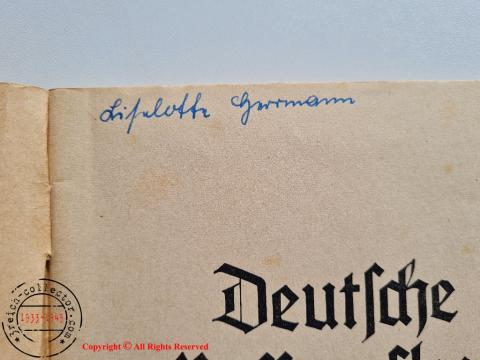 Liselotte Herrmann
Deutsche
3reich-collector.com
1933-1945
Copyright © All Rights Reserved